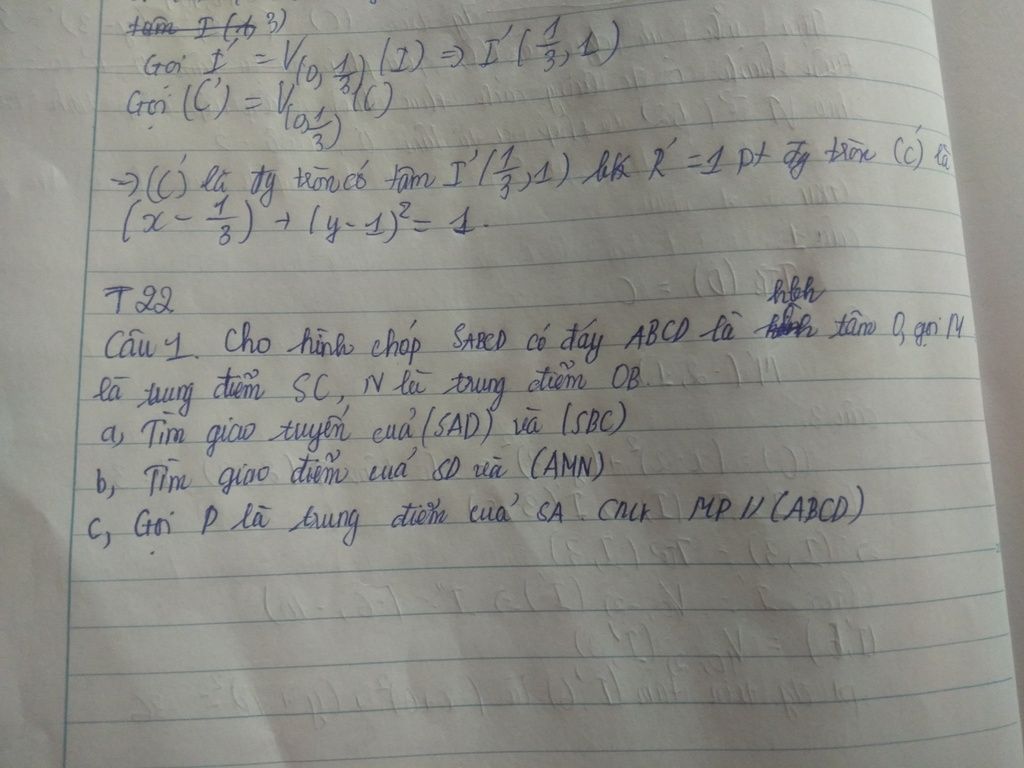 tâm I (1, 3)
Gọi I' = V(O, 1/3) (I) => I' (1/3, 1)
Gọi (C') = V(O, 1/3) (C)
=> (C') là đg tròn có tâm I' (1/3, 1) bk R' = 1 pt đg tròn (C') là
(x - 1/3) + (y - 1)² = 1.
T 22
Câu 1. Cho hình chóp SABCD có đáy ABCD là hbh tâm O, gọi M
là trung điểm SC, N là trung điểm OB.
a, Tìm giao tuyến của (SAD) và (SBC)
b, Tìm giao điểm của SD và (AMN)
c, Gọi P là trung điểm của SA. CMR MP // (ABCD)